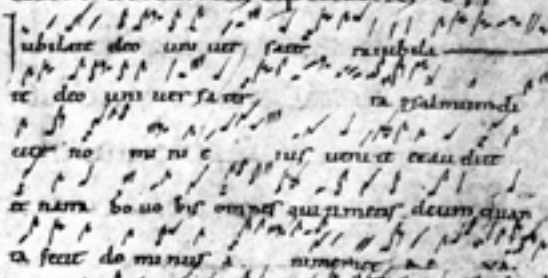 Iubilate deo uni uer sa ter ra iubila
te deo uni uer sa ter ra psalmum di
cite no mi ni e ius uenite et audite
et narra bo uo bis omnes qui timetis deum quan
ta fecit do mi nus a nime mee